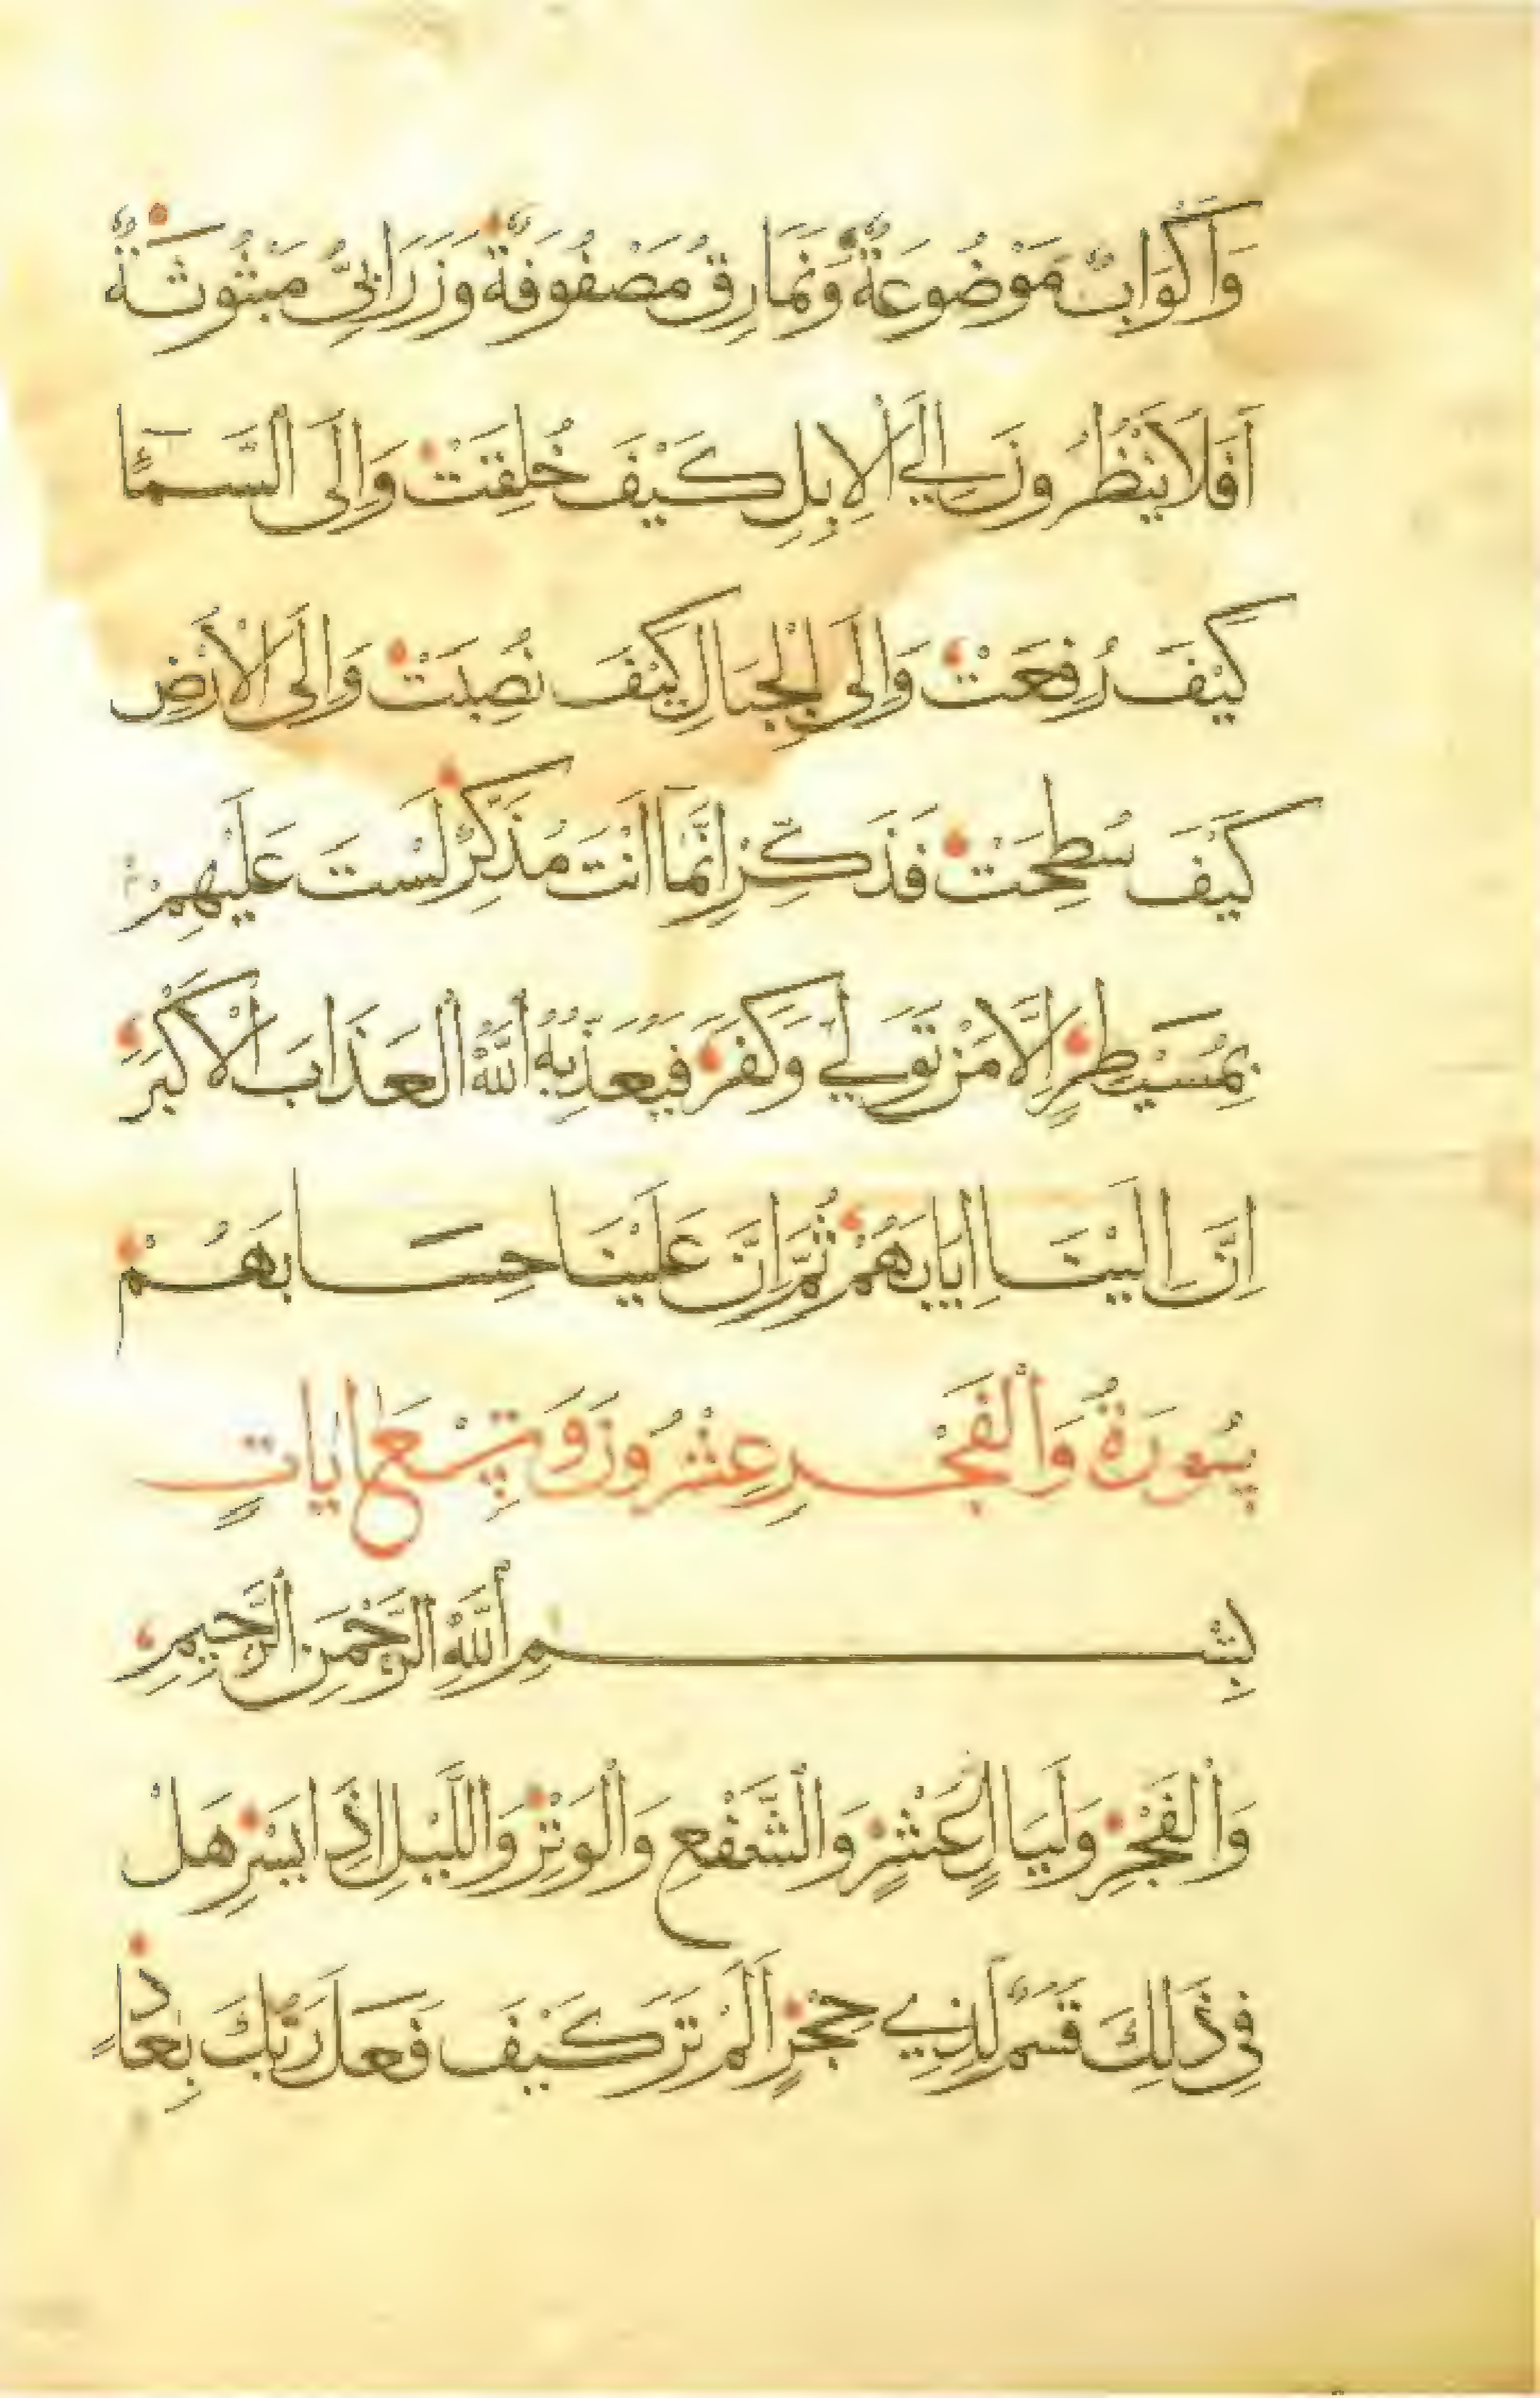 وَاَكْوَابٌ مَوْضُوعَةٌ وَنَمَارِقُ مَصْفُوفَةٌ وَزَرَابِيُّ مَبْثُوثَةٌ
اَفَلَا يَنْظُرُونَ اِلَي الْاِبِلِ كَيْفَ خُلِقَتْ وَاِلَى السَّمَاءِ
كَيْفَ رُفِعَتْ وَاِلَى الْجِبَالِ كَيْفَ نُصِبَتْ وَاِلَى الْاَرْضِ
كَيْفَ سُطِحَتْ فَذَكِّرْ اِنَّمَا اَنْتَ مُذَكِّرٌ لَسْتَ عَلَيْهِمْ
بِمُسَيْطِرٍ اِلَّا مَنْ تَوَلَّي وَكَفَرَ فَيُعَذِّبُهُ اللَّهُ الْعَذَابَ الْاَكْبَرَ
اِنَّ اِلَيْنَا اِيَابَهُمْ ثُمَّ اِنَّ عَلَيْنَا حِسَابَهُمْ
سُورَةُ وَالْفَجْرِ عِشْرُونَ وَتِسْعُ اٰيَاتٍ
بِسْمِ اللَّهِ الرَّحْمَنِ الرَّحِيمِ
وَالْفَجْرِ وَلَيَالٍ عَشْرٍ وَالشَّفْعِ وَالْوَتْرِ وَاللَّيْلِ اِذَا يَسْرِ هَلْ
فِي ذَلِكَ قَسَمٌ لِذِي حِجْرٍ اَلَمْ تَرَ كَيْفَ فَعَلَ رَبُّكَ بِعَادٍ